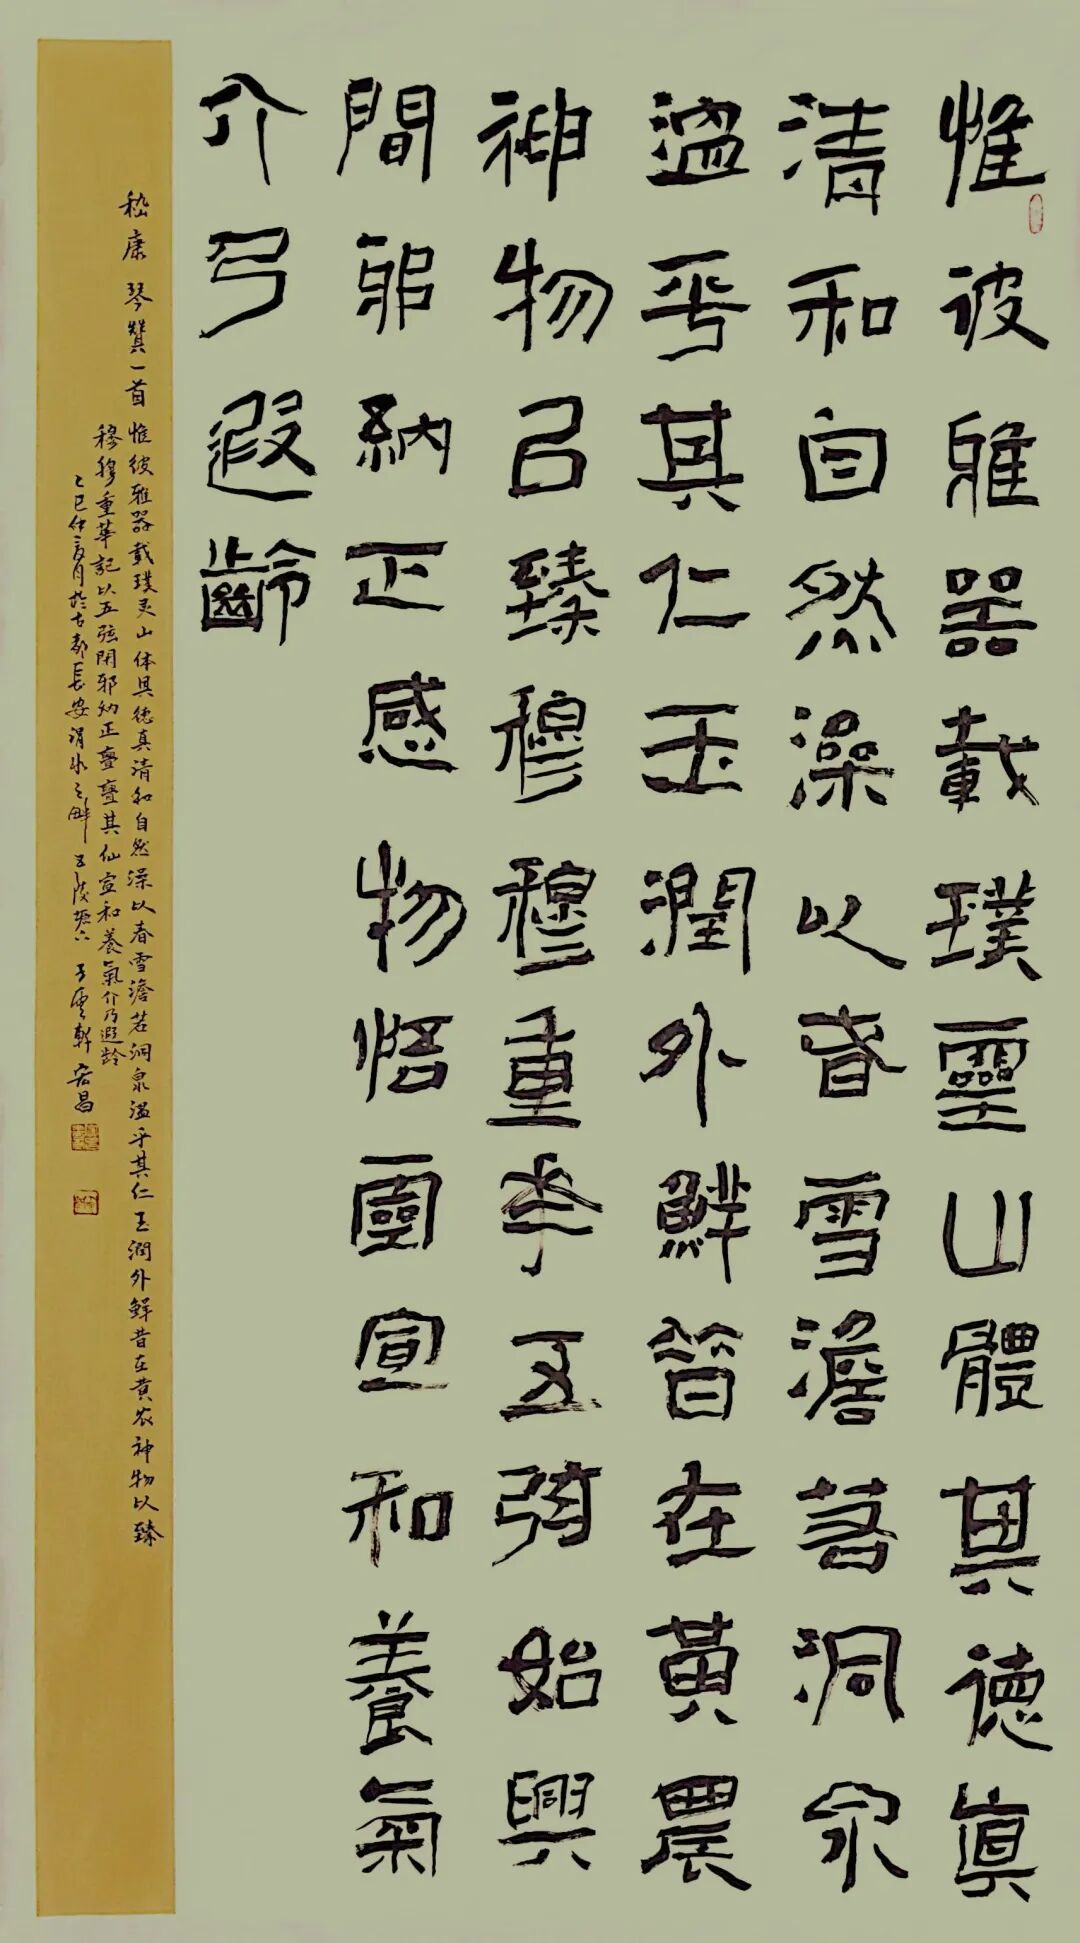 惟彼雅器載璞靈山體其德真
清和自然澡以春雪澹若洞泉
溫乎其仁玉潤外鮮昔在黃農
神物以臻穆穆重華五弦始興
閒邪納正感物悟靈宣和養氣
介乃遐齡
嵇康 琴贊一首 惟彼雅器載璞灵山体具德真清和自然澡以春雪澹若洞泉溫乎其仁玉潤外鮮昔在黄农神物以臻
穆穆重華記以五弦閑邪納正亹亹其仙宣和養氣介乃遐齡
乙巳仲夏月於古都長安渭水之畔 宏昌